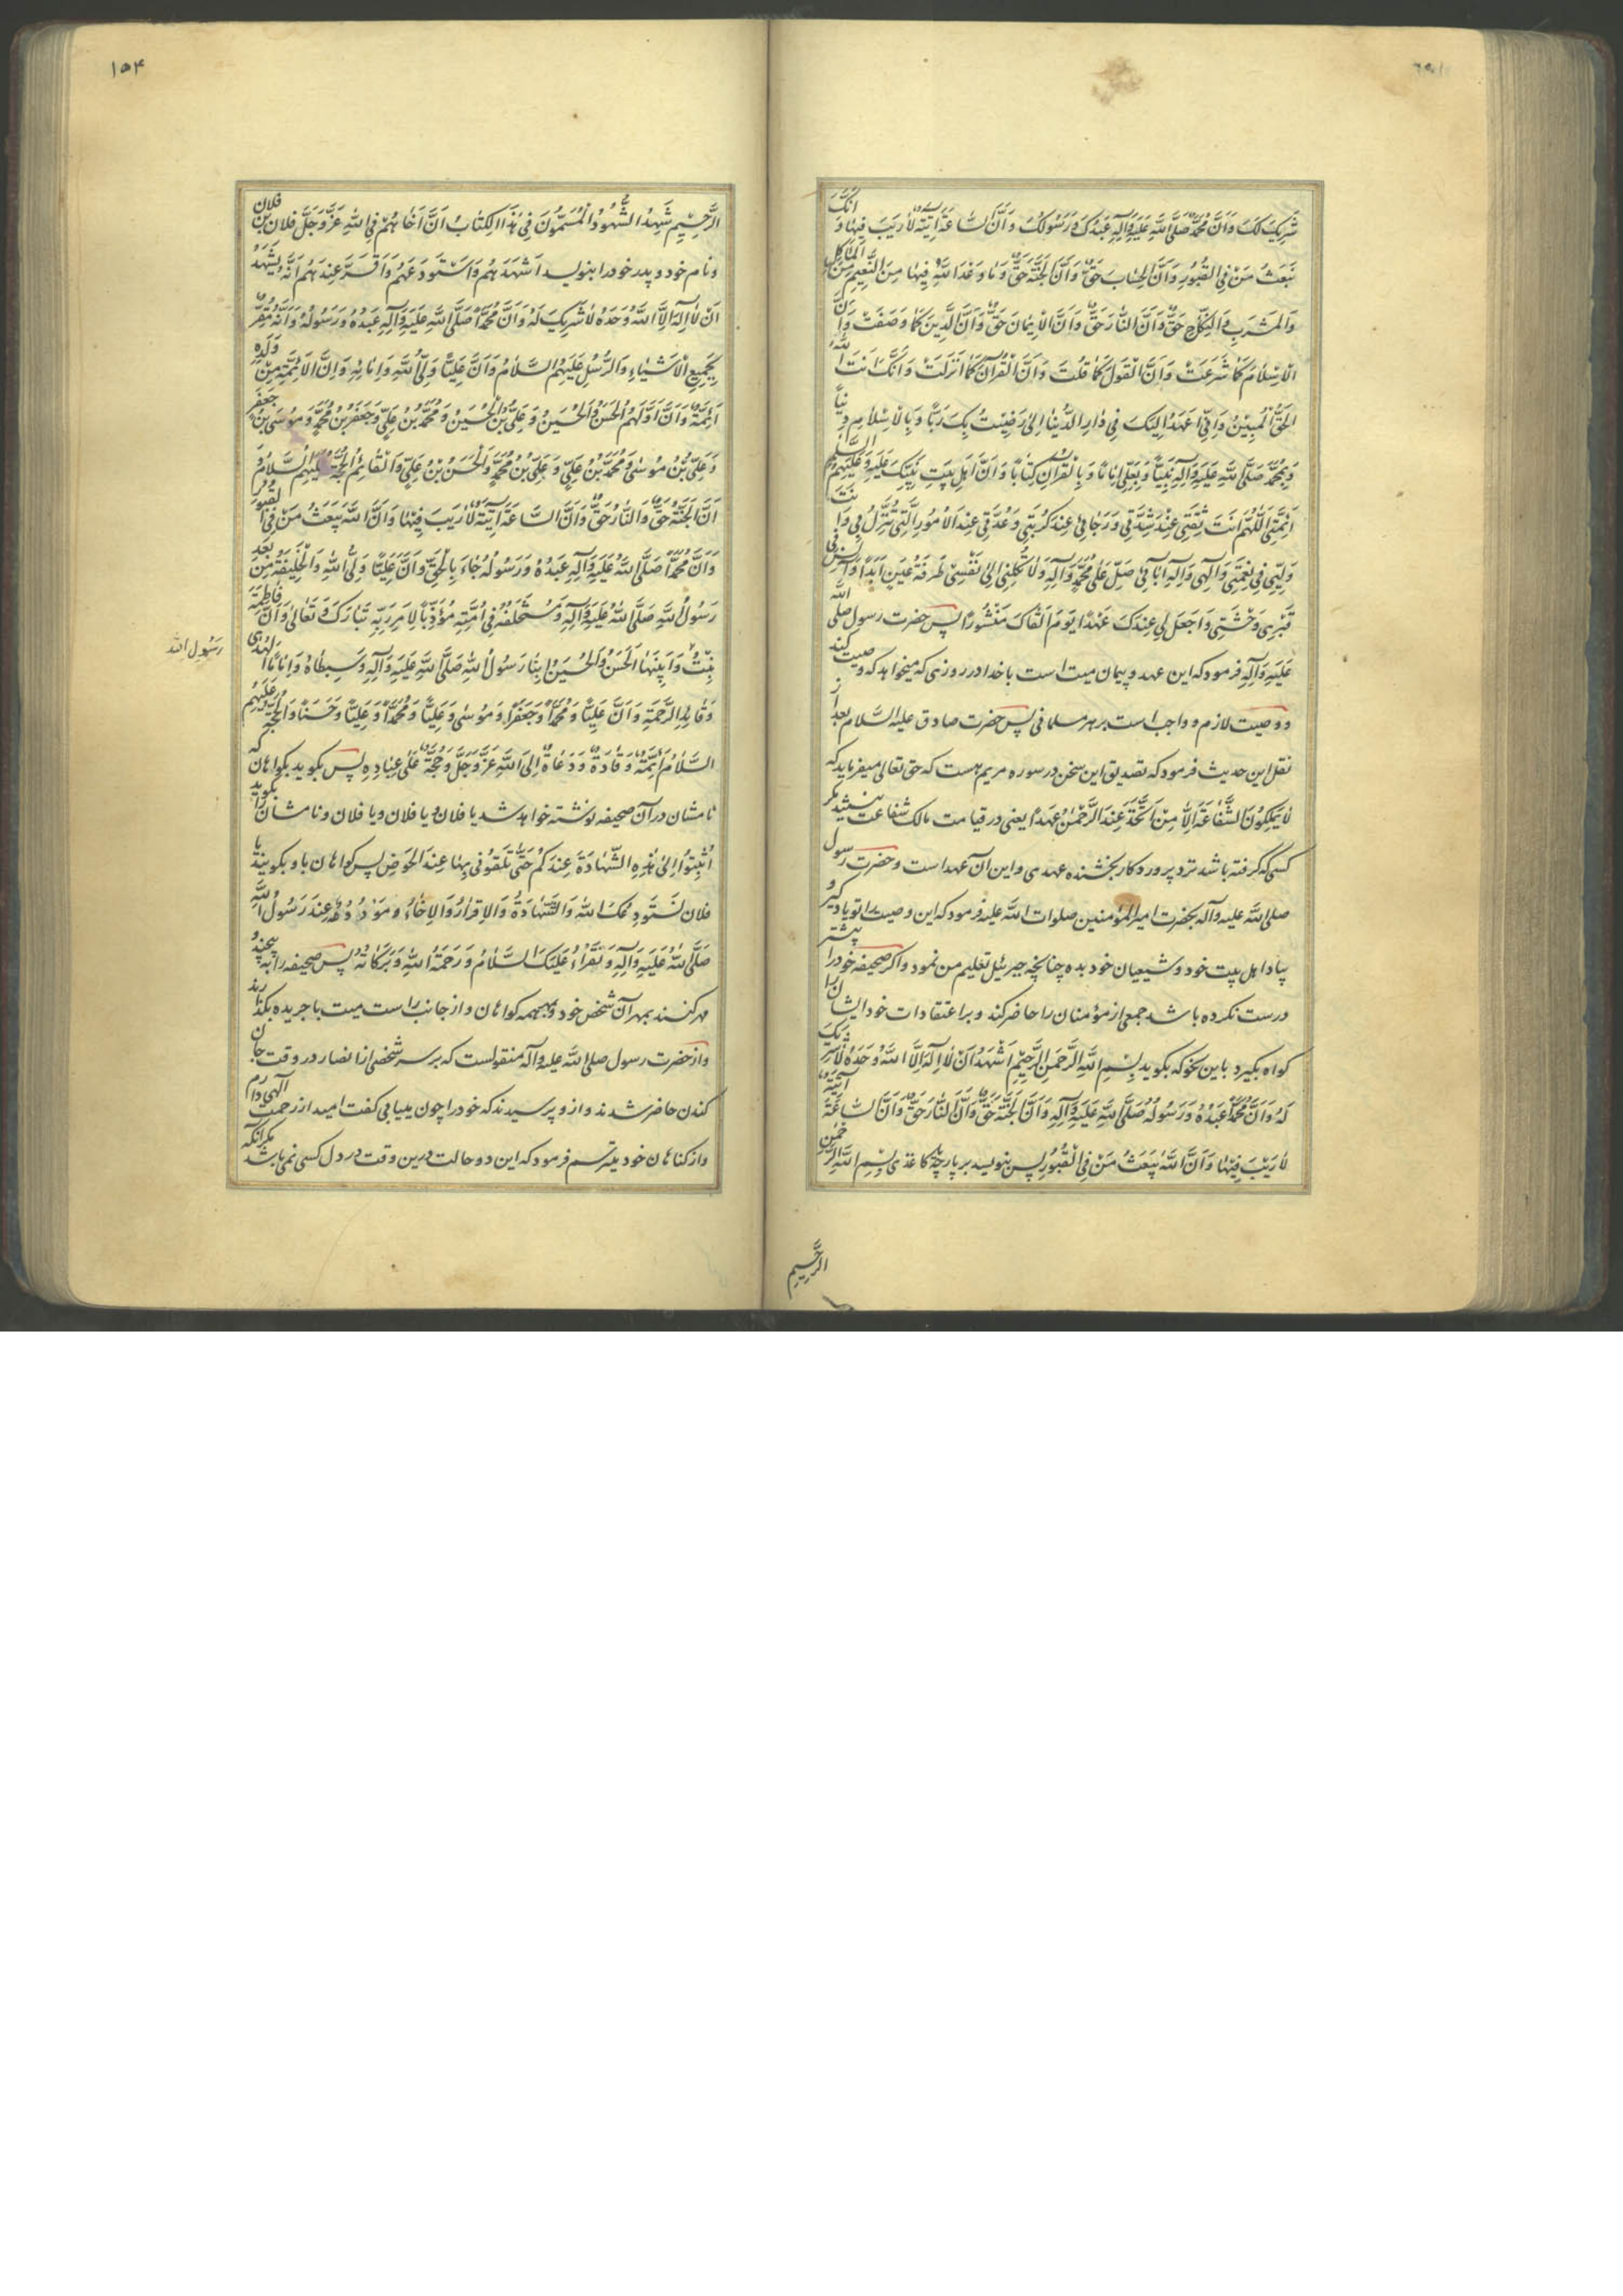 شَرِیکَ لَکَ وَاَنَّ مُحَمَّدًا صَلَّی اللّٰهُ عَلَیْهِ وَآلِهِ عَبْدُکَ وَرَسُولُکَ وَاَنَّ السَّاعَةَ آتِیَةٌ لَا رَیْبَ فِیهَا وَ اَنَّکَ
تَبْعَثُ مَنْ فِی الْقُبُورِ وَاَنَّ الْحِسَابَ حَقٌّ وَاَنَّ الْجَنَّةَ حَقٌّ وَمَا وَعَدَ اللّٰهُ فِیهَا مِنَ النَّعِیمِ مِنَ الْمَأکَلِ
وَالْمَشْرَبِ وَالنِّکَاحِ حَقٌّ وَاَنَّ النَّارَ حَقٌّ وَاَنَّ الْاِیمَانَ حَقٌّ وَاَنَّ الدِّینَ کَمَا وَصَفْتَ وَاَنَّ
الْاِسْلَامَ کَمَا شَرَعْتَ وَاَنَّ الْقَوْلَ کَمَا قُلْتَ وَاَنَّ الْقُرْآنَ کَمَا اَنْزَلْتَ وَاَنَّکَ اَنْتَ اللّٰهُ
الْحَقُّ الْمُبِینُ وَاِنِّی اَعْهَدُ اِلَیْکَ فِی دَارِ الدُّنْیَا اِنِّی رَضِیتُ بِکَ رَبًّا وَبِالْاِسْلَامِ دِینًا
وَبِمُحَمَّدٍ صَلَّی اللّٰهُ عَلَیْهِ وَآلِهِ نَبِیًّا وَبِعَلِیٍّ اِمَامًا وَبِالْقُرْآنِ کِتَابًا وَاَنَّ اَهْلَ بَیْتِ نَبِیِّکَ عَلَیْهِ وَعَلَیْهِمُ السَّلَامُ
اَئِمَّتِی اَللّٰهُمَّ اَنْتَ ثِقَتِی عِنْدَ شِدَّتِی وَرَجَائِی عِنْدَ کُرْبَتِی وَعُدَّتِی عِنْدَ الْاُمُورِ الَّتِی تَنْزِلُ بِی وَاَنْتَ
وَلِیِّی فِی نِعْمَتِی وَاِلٰهِی وَاِلٰهَ آبَائِی صَلِّ عَلٰی مُحَمَّدٍ وَآلِهِ وَلَا تَکِلْنِی اِلٰی نَفْسِی طَرْفَةَ عَیْنٍ اَبَدًا وَآنِسْ فِی
قَبْرِی وَحْشَتِی وَاجْعَلْ لِی عِنْدَکَ عَهْدًا یَوْمَ اَلْقَاکَ مَنْشُورًا پس حضرت رسول صلی اللّٰه
عَلَیْهِ وَآلِهِ فرمود که این عهد و پیمان میت است با خدا در روزی که میخواهد که وصیت کند
و وصیت لازم و واجب است بر هر مسلمانی پس حضرت صادق علیه السلام بعد از
نقل این حدیث فرمود که تصدیق این سخن در سوره مریم هست که حق تعالی میفرماید که
لَا یَمْلِکُونَ الشَّفَاعَةَ اِلَّا مَنِ اتَّخَذَ عِنْدَ الرَّحْمٰنِ عَهْدًا یعنی در قیامت مالک شفاعت نیستند مگر
کسی که گرفته باشد نزد پروردکار بخشنده عهدی و این آن عهد است و حضرت رسول
صلی اللّٰه علیه وآله بحضرت امیرالمؤمنین صلوات اللّٰه علیه فرمود که این وصیت را تو یاد گیر و
بیاد اهل بیت خود و شیعیان خود بده چنانچه جبرئیل تعلیم من نمود و اگر صحیفه خود را پیشتر
درست نکرده باشد جمعی از مؤمنان را حاضر کند و بر اعتقادات خود ایشان را
کواه بگیرد باین نحو که بگوید بِسْمِ اللّٰهِ الرَّحْمٰنِ الرَّحِیمِ اَشْهَدُ اَنْ لَا اِلٰهَ اِلَّا اللّٰهُ وَحْدَهُ لَا شَرِیکَ
لَهُ وَاَنَّ مُحَمَّدًا عَبْدُهُ وَرَسُولُهُ صَلَّی اللّٰهُ عَلَیْهِ وَآلِهِ وَاَنَّ الْجَنَّةَ حَقٌّ وَاَنَّ النَّارَ حَقٌّ وَاَنَّ السَّاعَةَ آتِیَةٌ
لَا رَیْبَ فِیهَا وَاَنَّ اللّٰهَ یَبْعَثُ مَنْ فِی الْقُبُورِ پس بنویسد بر پارچه کاغذی بِسْمِ اللّٰهِ الرَّحْمٰنِ
الرَّحِیمِ
۱۵۴
الرَّحِیمِ شَهِدَ الشُّهُودُ الْمُسَمَّوْنَ فِی هٰذَا الْکِتَابِ اَنَّ اَخَاهُمْ فِی اللّٰهِ عَزَّ وَجَلَّ فلان بن فلان
و نام خود و پدر خود را بنویسد اَشْهَدَهُمْ وَاسْتَوْدَعَهُمْ وَاَقَرَّ عِنْدَهُمْ اَنَّهُ یَشْهَدُ
اَنْ لَا اِلٰهَ اِلَّا اللّٰهُ وَحْدَهُ لَا شَرِیکَ لَهُ وَاَنَّ مُحَمَّدًا صَلَّی اللّٰهُ عَلَیْهِ وَآلِهِ عَبْدُهُ وَرَسُولُهُ وَاَنَّهُ مُقِرٌّ
بِجَمِیعِ الْاَنْبِیَاءِ وَالرُّسُلِ عَلَیْهِمُ السَّلَامُ وَاَنَّ عَلِیًّا وَلِیُّ اللّٰهِ وَاِمَامُهُ وَاَنَّ الْاَئِمَّةَ مِنْ وُلْدِهِ
اَئِمَّتُهُ وَاَنَّ اَوَّلَهُمُ الْحَسَنُ وَالْحُسَیْنُ وَعَلِیُّ بْنُ الْحُسَیْنِ وَمُحَمَّدُ بْنُ عَلِیٍّ وَجَعْفَرُ بْنُ مُحَمَّدٍ وَمُوسَی بْنُ جَعْفَرٍ
وَعَلِیُّ بْنُ مُوسٰی وَمُحَمَّدُ بْنُ عَلِیٍّ وَعَلِیُّ بْنُ مُحَمَّدٍ وَالْحَسَنُ بْنُ عَلِیٍّ وَالْقَائِمُ الْحُجَّةُ عَلَیْهِمُ السَّلَامُ وَ
اَنَّ الْجَنَّةَ حَقٌّ وَالنَّارَ حَقٌّ وَاَنَّ السَّاعَةَ آتِیَةٌ لَا رَیْبَ فِیهَا وَاَنَّ اللّٰهَ یَبْعَثُ مَنْ فِی الْقُبُورِ
وَاَنَّ مُحَمَّدًا صَلَّی اللّٰهُ عَلَیْهِ وَآلِهِ عَبْدُهُ وَرَسُولُهُ جَاءَ بِالْحَقِّ وَاَنَّ عَلِیًّا وَلِیُّ اللّٰهِ وَالْخَلِیفَةُ مِنْ بَعْدِ
رَسُولِ اللّٰهِ صَلَّی اللّٰهُ عَلَیْهِ وَآلِهِ وَمُسْتَخْلَفُهُ فِی اُمَّتِهِ مُؤَدِّیًا لِاَمْرِ رَبِّهِ تَبَارَکَ وَتَعَالٰی وَاَنَّ فَاطِمَةَ
بِنْتُ وَابْنَیْهَا الْحَسَنُ وَالْحُسَیْنُ ابْنَا رَسُولِ اللّٰهِ صَلَّی اللّٰهُ عَلَیْهِ وَآلِهِ وَسِبْطَاهُ وَاِمَامَا الْهُدٰی
رَسُولِ اللّٰه
وَقَائِدَا الرَّحْمَةِ وَاَنَّ عَلِیًّا وَمُحَمَّدًا وَجَعْفَرًا وَمُوسٰی وَعَلِیًّا وَمُحَمَّدًا وَعَلِیًّا وَحَسَنًا وَالْحُجَّةَ عَلَیْهِمُ
السَّلَامُ اَئِمَّةٌ وَقَادَةٌ وَدُعَاةٌ اِلَی اللّٰهِ عَزَّ وَجَلَّ وَحُجَّةٌ عَلٰی عِبَادِهِ پس بگوید بگواهان که
نامشان در آن صحیفه نوشته خواهد شد یا فلان و یا فلان و یا فلان و نامشان را بگوید
اُثْبُتُوا لِی هٰذِهِ الشَّهَادَةَ عِنْدَکُمْ حَتّٰی تَلْقَوْنِی بِهَا عِنْدَ الْحَوْضِ پس کواهان باو بگویند یا
فلان نَسْتَوْدِعُکَ اللّٰهَ وَالشَّهَادَةُ وَالْاِقْرَارُ وَالْاِخَاءُ وَمَوْدُودُةٌ عِنْدَ رَسُولِ اللّٰهِ
صَلَّی اللّٰهُ عَلَیْهِ وَآلِهِ وَنَقْرَأُ عَلَیْکَ السَّلَامُ وَرَحْمَةُ اللّٰهِ وَبَرَکَاتُهُ پس صحیفه را به پیچند و
مهر کنند بمهر آن شخص خود و بمهر همه کواهان و از جانب راست میت با جریده بگذارند
و از حضرت رسول صلی اللّٰه علیه وآله منقولست که بر سر شخصی از انصار در وقت جان
کندن حاضر شدند و ازو پرسیدند که خود را چون مییابی گفت امید از رحمت الهی دارم
و از کناهان خود میترسم فرمود که این دو حالت درین وقت در دل کسی نمیباشد مگر آنکه